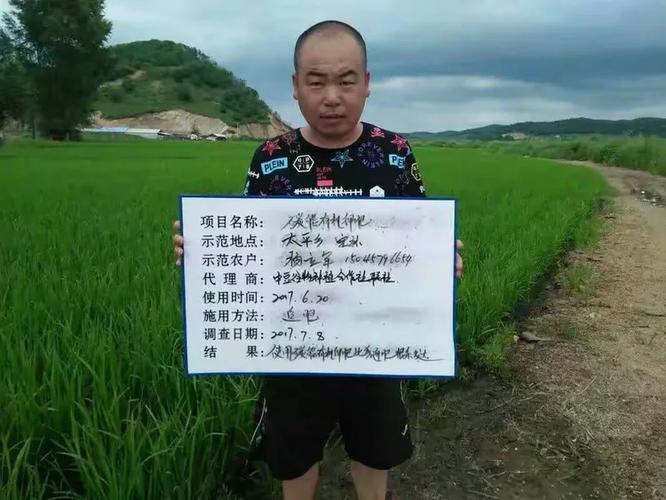 PLEIN
PLEIN
项目名称： 碳能有机卵肥
示范地点： 太平乡
示范农户： 杨立军 15045796654
代理商： 中豆谷物种植合作社联社
使用时间： 2017.6.20
施用方法： 追肥
调查日期： 2017.7.8
结果： 使用碳能有机卵肥比普通肥